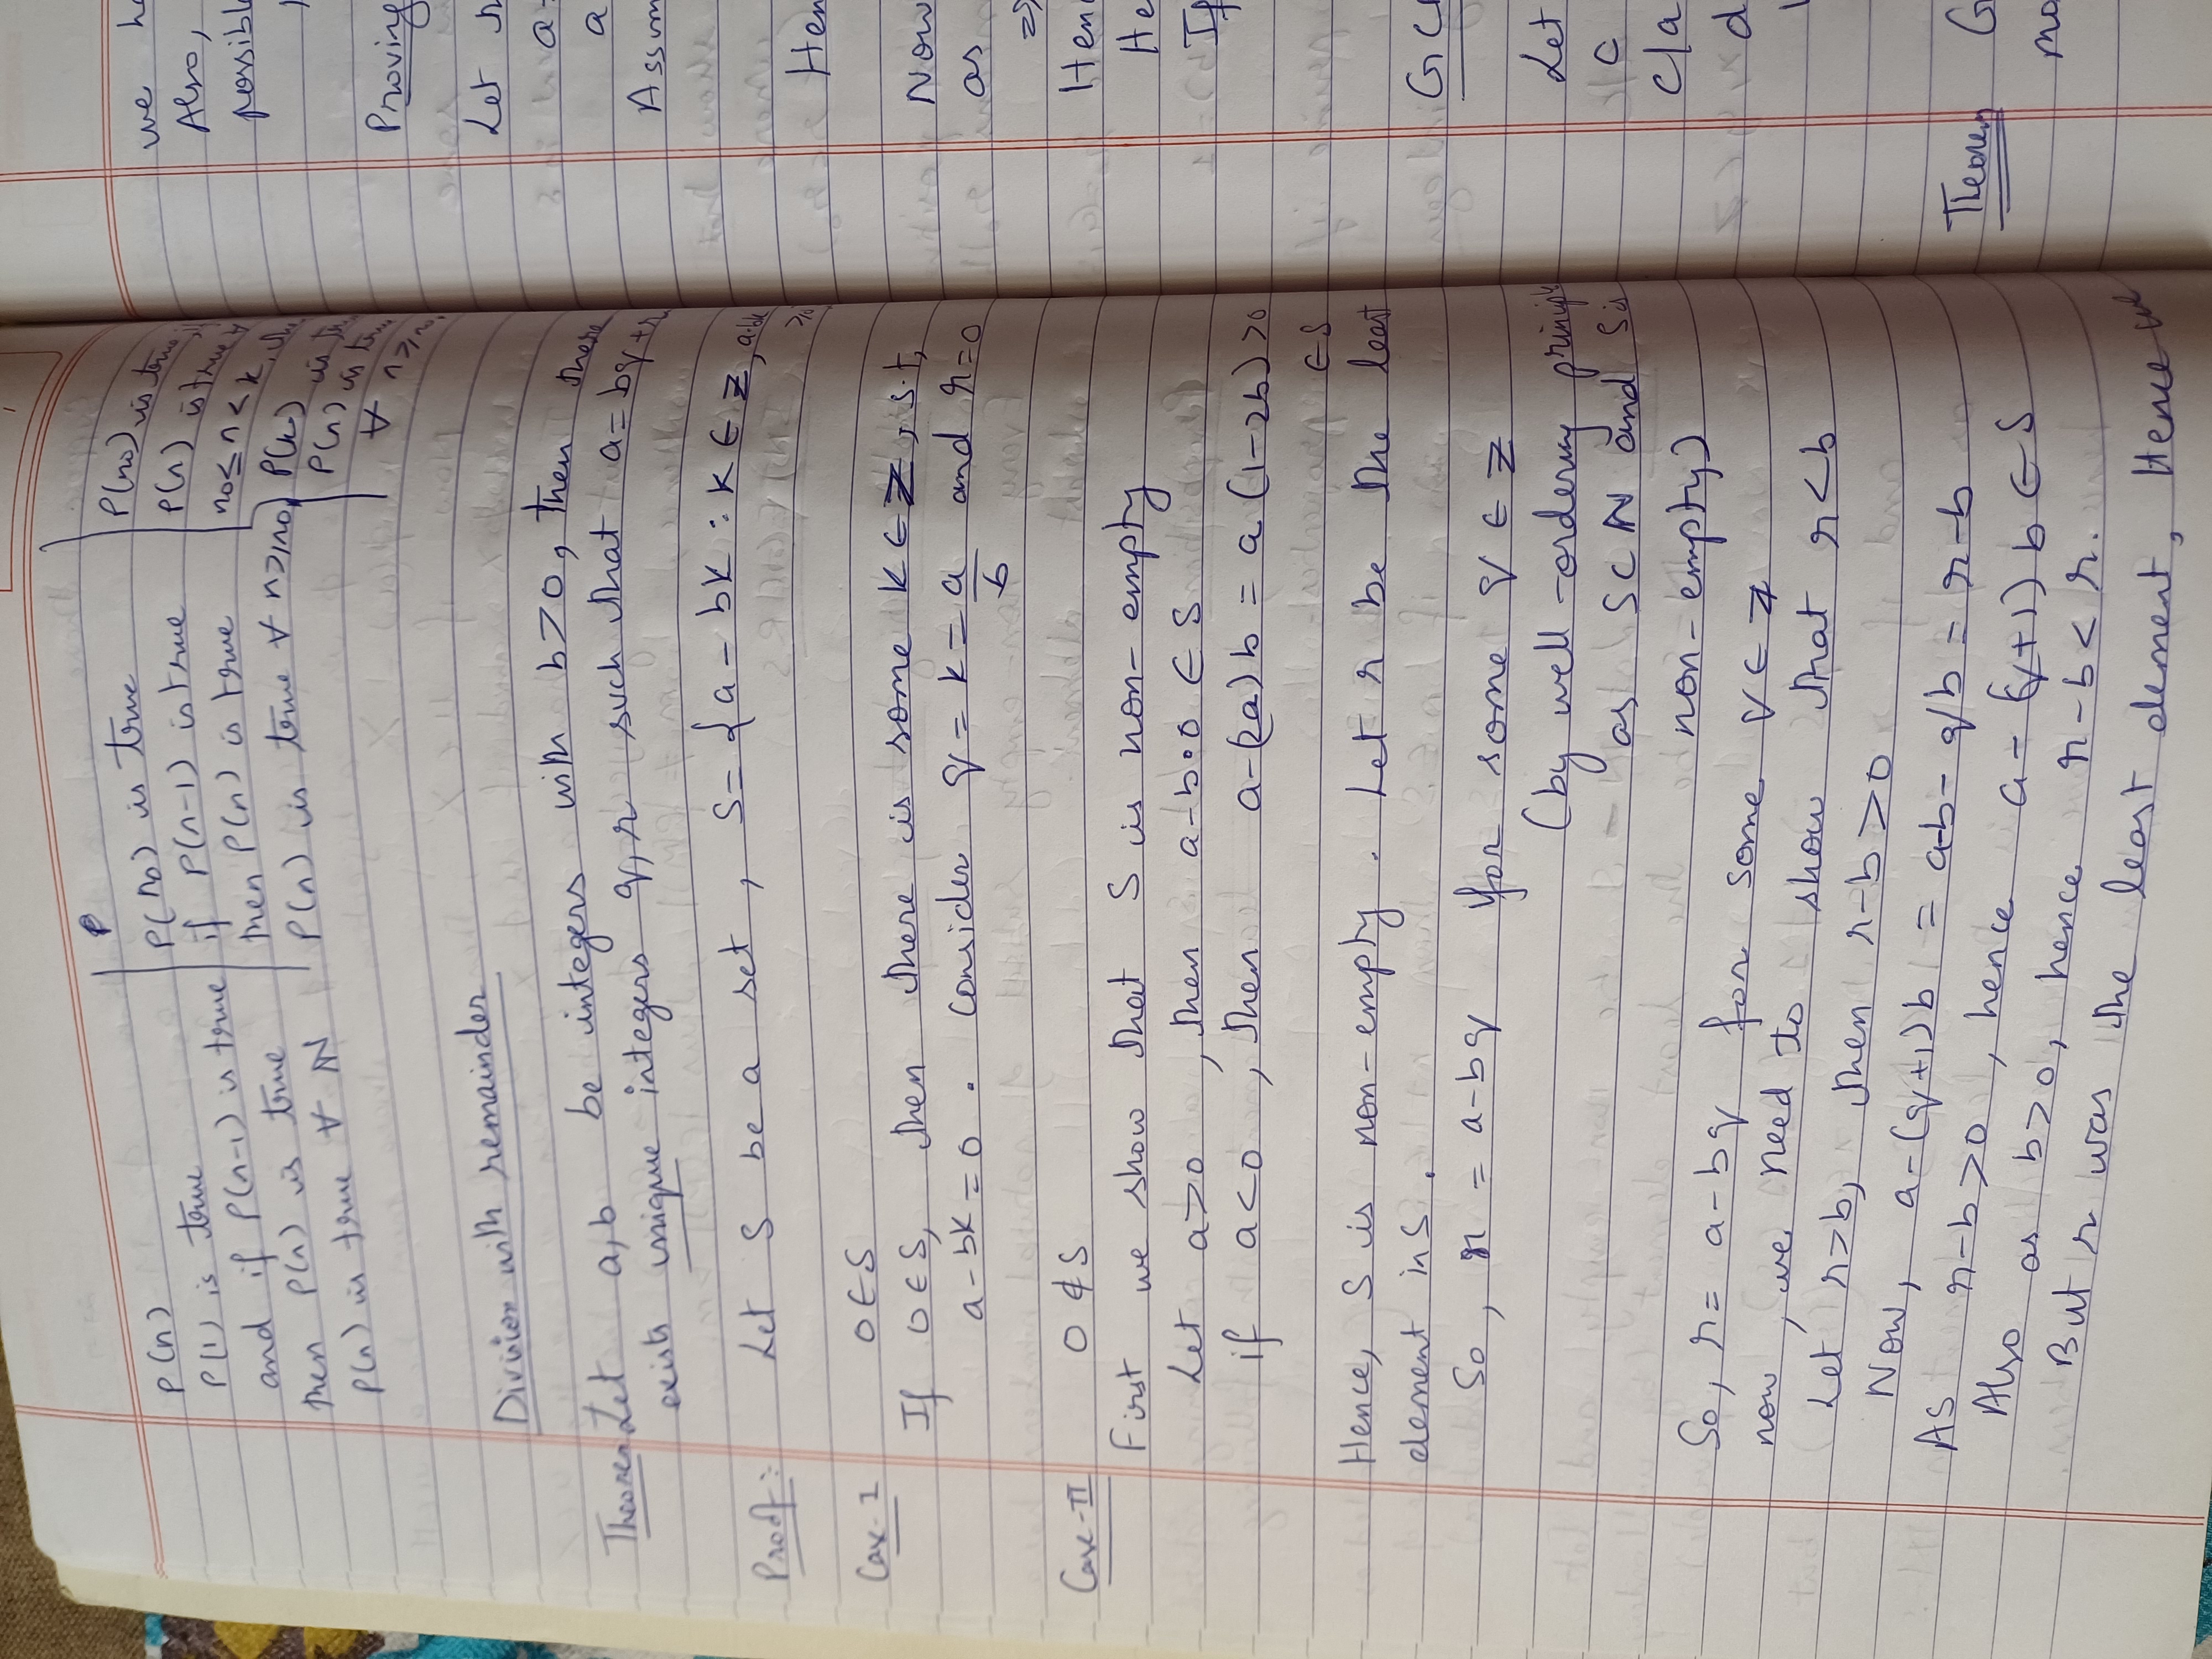 P(n)
P(1) is true
and if P(n-1) is true
then P(n) is true
P(n) is true ∀ N
P
P(n0) is true
if P(n-1) is true
then P(n) is true
P(n) is true ∀ n≥n0
P(n0) is true,
P(n) is true ∀
n0≤n<k, then
P(k) is true
P(n) is true
∀ n≥n0,
Division with remainder
Theorem Let a,b be integers with b>0, then there
exist unique integers q,r such that a=bq+r
Proof: Let S be a set, S={a-bk : k∈Z, a-bk
≥0
Case-I 0∈S
If 0∈S, then there is some k∈Z, s.t,
a-bk=0. Consider q=k=a/b and r=0
Case-II 0∉S
First we show that S is non-empty
Let a>0, then a-b·0 ∈ S
if a<0, then a-(2a)b = a(1-2b)>0
∈S
Hence, S is non-empty. Let r be the least
element in S.
So, r = a-bq for some q ∈ Z
(by well-ordering principle
as S⊂N and S is
non-empty)
So, r= a-bq for some q∈Z
now, we need to show that r<b
Let r>b, then r-b>0
Now, a-(q+1)b = a-b-qb=r-b
As r-b>0, hence a-(q+1)b∈S
Also as b>0, hence r-b<r.
But r was the least element, Hence we
we ha
Also,
possible
Proving
Let
a=
a
Assum
Hen
Now
as
⇒
Hen
He
If
GC
Let
c
c/a
d
Theorem G
mo